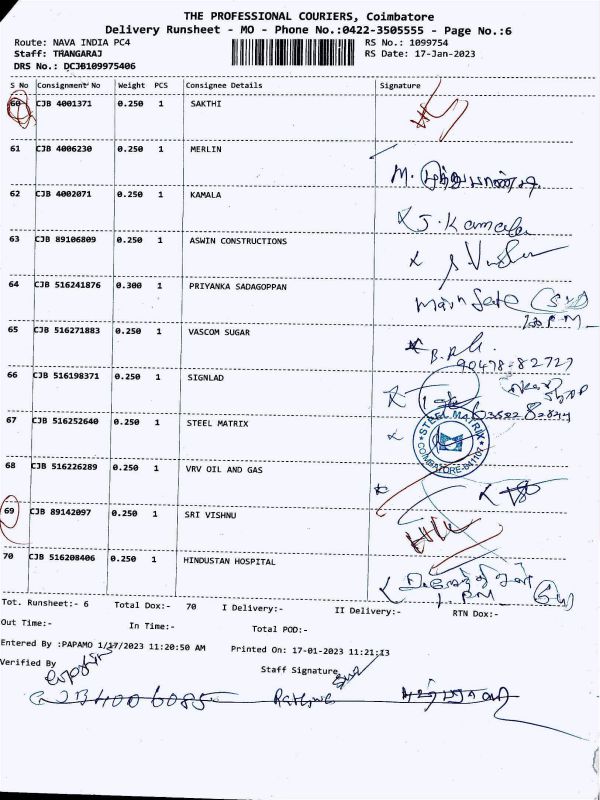 THE PROFESSIONAL COURIERS, Coimbatore
Delivery Runsheet - MO - Phone No.:0422-3505555 - Page No.:6
Route: NAVA INDIA PC4 RS No.: 1099754
Staff: TRANGARAJ RS Date: 17-Jan-2023
DRS No.: DCJB109975406
S No Consignment No Weight PCS Consignee Details Signature
60 CJB 4001371 0.250 1 SAKTHI
61 CJB 4006230 0.250 1 MERLIN
M. முத்துபாண்டி
62 CJB 4002071 0.250 1 KAMALA
J. Kamala
63 CJB 89106809 0.250 1 ASWIN CONSTRUCTIONS
64 CJB 516241876 0.300 1 PRIYANKA SADAGOPPAN
Main Gate
65 CJB 516271883 0.250 1 VASCOM SUGAR
90478-82727
66 CJB 516198371 0.250 1 SIGNLAD
67 CJB 516252640 0.250 1 STEEL MATRIX
STEEL MATRIX
COIMBATORE-641
68 CJB 516226289 0.250 1 VRV OIL AND GAS
69 CJB 89142097 0.250 1 SRI VISHNU
70 CJB 516208406 0.250 1 HINDUSTAN HOSPITAL
1. PM
Tot. Runsheet:- 6 Total Dox:- 70 I Delivery:- II Delivery:- RTN Dox:-
Out Time:- In Time:- Total POD:-
Entered By :PAPAMO 1/17/2023 11:20:50 AM Printed On: 17-01-2023 11:21:13
Verified By Staff Signature
CJB4006085